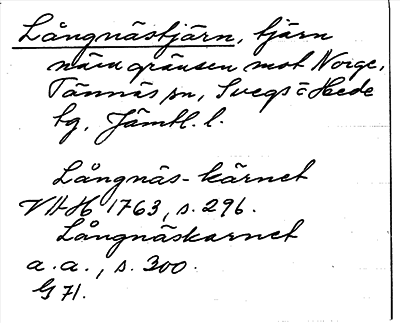 Långnästjärn, tjärn
nära gränsen mot Norge,
Tännäs sn, Svegs o Hede
tg, Jämtl. l.
Långnäs-kärnet
VHH 1763, s. 296.
Långnäskarnet
a. a., s. 300.
G 71.